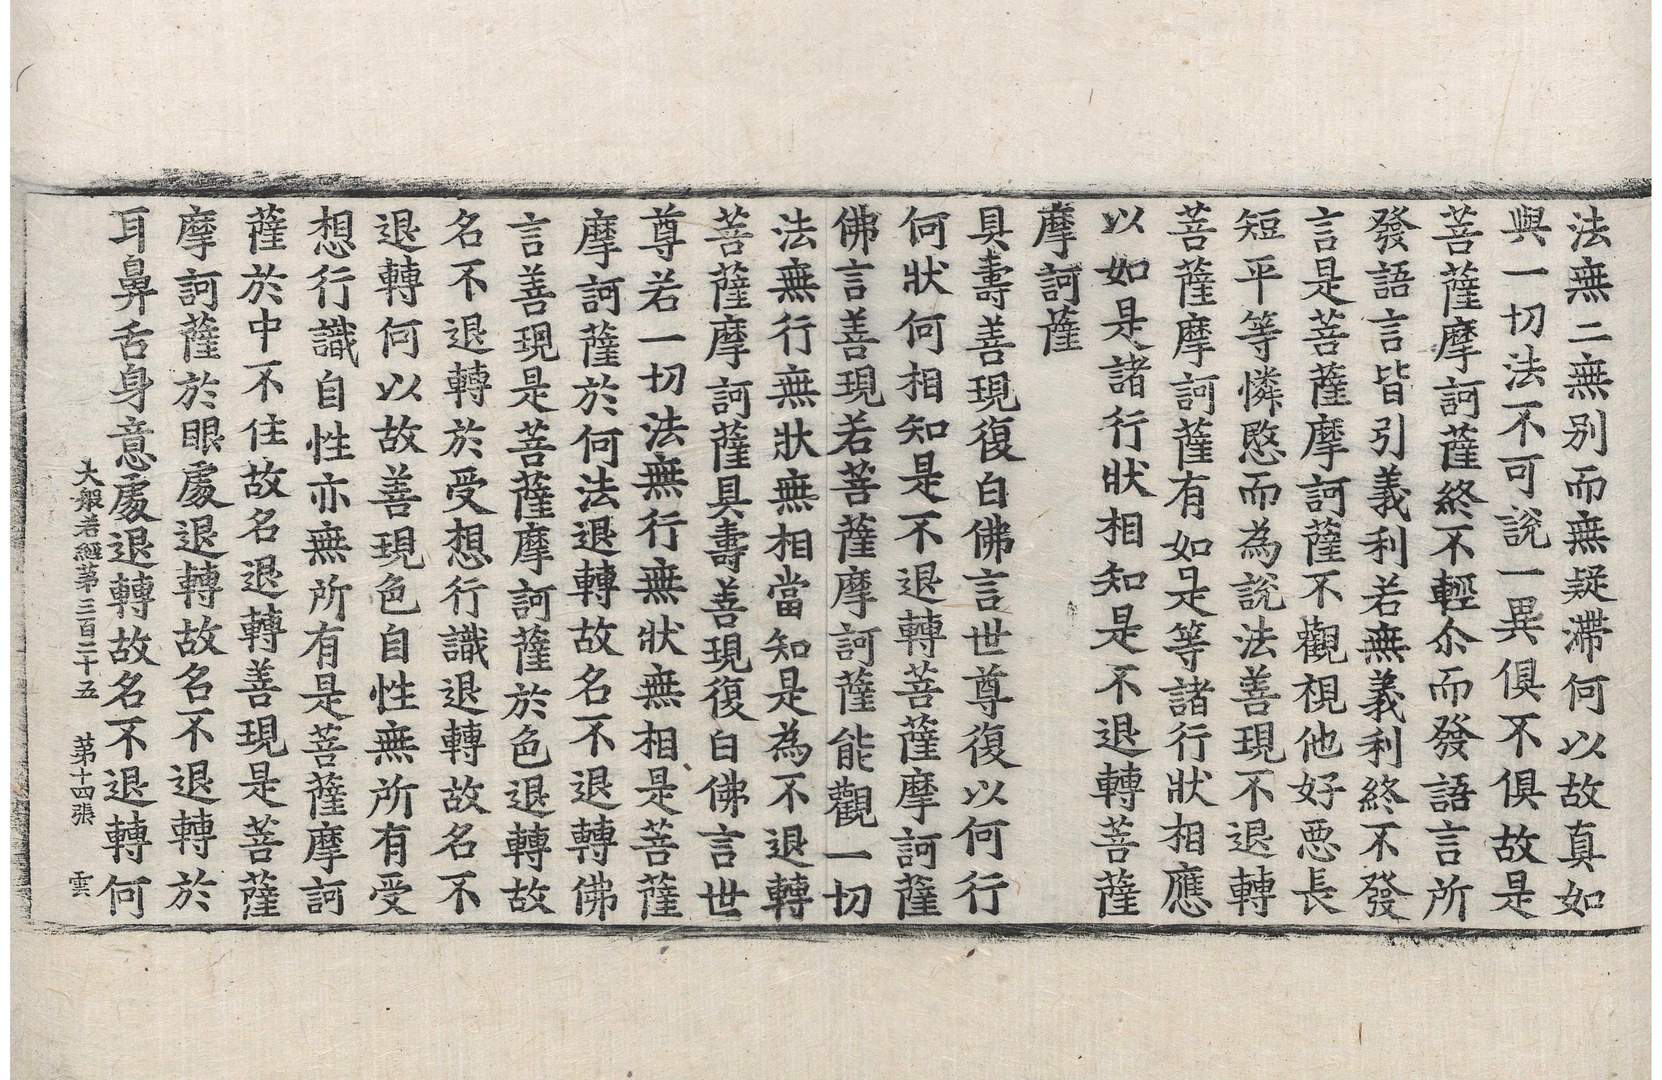 法無二無別而無疑滯何以故真如
與一切法不可說一異俱不俱故是
菩薩摩訶薩終不輕尒而發語言所
發語言皆引義利若無義利終不發
言是菩薩摩訶薩不觀視他好惡長
短平等憐愍而為說法善現不退轉
菩薩摩訶薩有如是等諸行狀相應
以如是諸行狀相知是不退轉菩薩
摩訶薩
具壽善現復白佛言世尊復以何行
何狀何相知是不退轉菩薩摩訶薩
佛言善現若菩薩摩訶薩能觀一切
法無行無狀無相當知是為不退轉
菩薩摩訶薩具壽善現復白佛言世
尊若一切法無行無狀無相是菩薩
摩訶薩於何法退轉故名不退轉佛
言善現是菩薩摩訶薩於色退轉故
名不退轉於受想行識退轉故名不
退轉何以故善現色自性無所有受
想行識自性亦無所有是菩薩摩訶
薩於中不住故名退轉善現是菩薩
摩訶薩於眼處退轉故名不退轉於
耳鼻舌身意處退轉故名不退轉何
大般若經第三百二十五 第十四張 雲